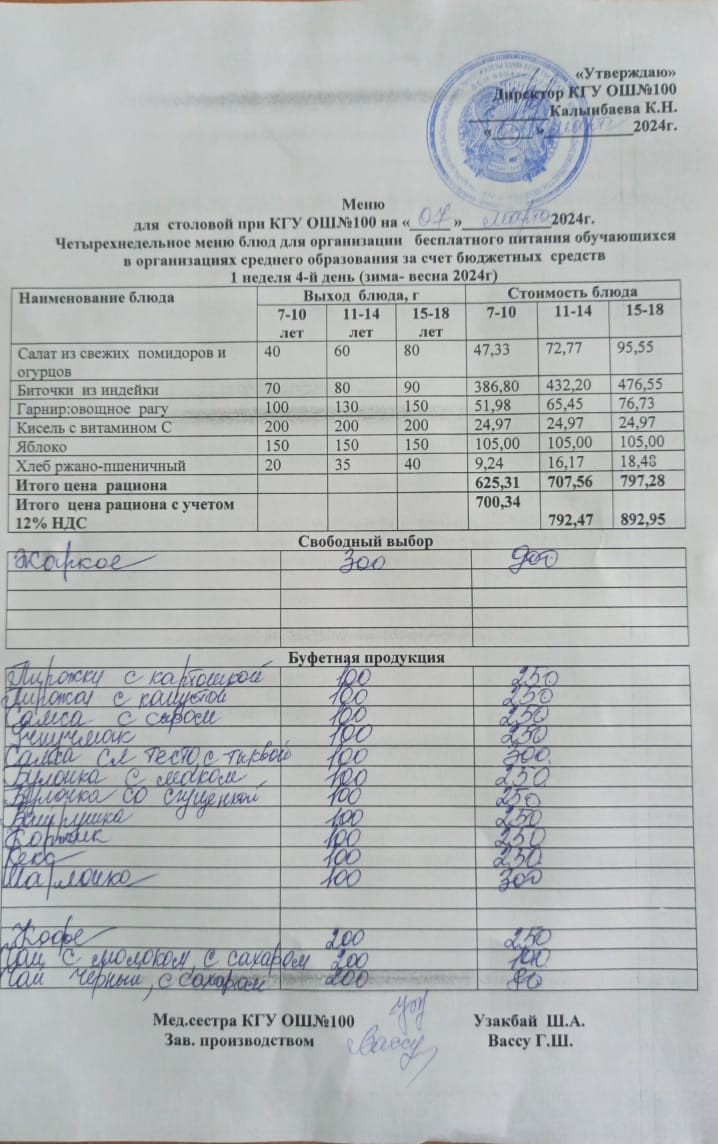 «Утверждаю»
Директор КГУ ОШ№100
Калынбаева К.Н.
« » марта 2024г.
Меню
для столовой при КГУ ОШ№100 на « 07 » марта 2024г.
Четырехнедельное меню блюд для организации бесплатного питания обучающихся
в организациях среднего образования за счет бюджетных средств
1 неделя 4-й день (зима- весна 2024г)
Наименование блюда Выход блюда, г Стоимость блюда
7-10 лет 11-14 лет 15-18 лет 7-10 11-14 15-18
Салат из свежих помидоров и огурцов 40 60 80 47,33 72,77 95,55
Биточки из индейки 70 80 90 386,80 432,20 476,55
Гарнир:овощное рагу 100 130 150 51,98 65,45 76,73
Кисель с витамином С 200 200 200 24,97 24,97 24,97
Яблоко 150 150 150 105,00 105,00 105,00
Хлеб ржано-пшеничный 20 35 40 9,24 16,17 18,48
Итого цена рациона 625,31 707,56 797,28
Итого цена рациона с учетом 12% НДС 700,34 792,47 892,95
Свободный выбор
Жаркое 300 900
Буфетная продукция
Пирожки с картошкой 100 250
Пирожки с капустой 100 250
Самса с сыром 100 250
Учпучмак 100 250
Самса сл тесто с тыквой 100 300
Булочка с маком 100 250
Булочка со сгущенкой 100 250
Ватрушка 100 250
Коржик 100 250
Кекс 100 250
100 300
Кофе 200 250
Чай с молоком, с сахаром 200 100
Чай черный, с сахаром 200 80
Мед.сестра КГУ ОШ№100 Узакбай Ш.А.
Зав. производством Вассу Вассу Г.Ш.